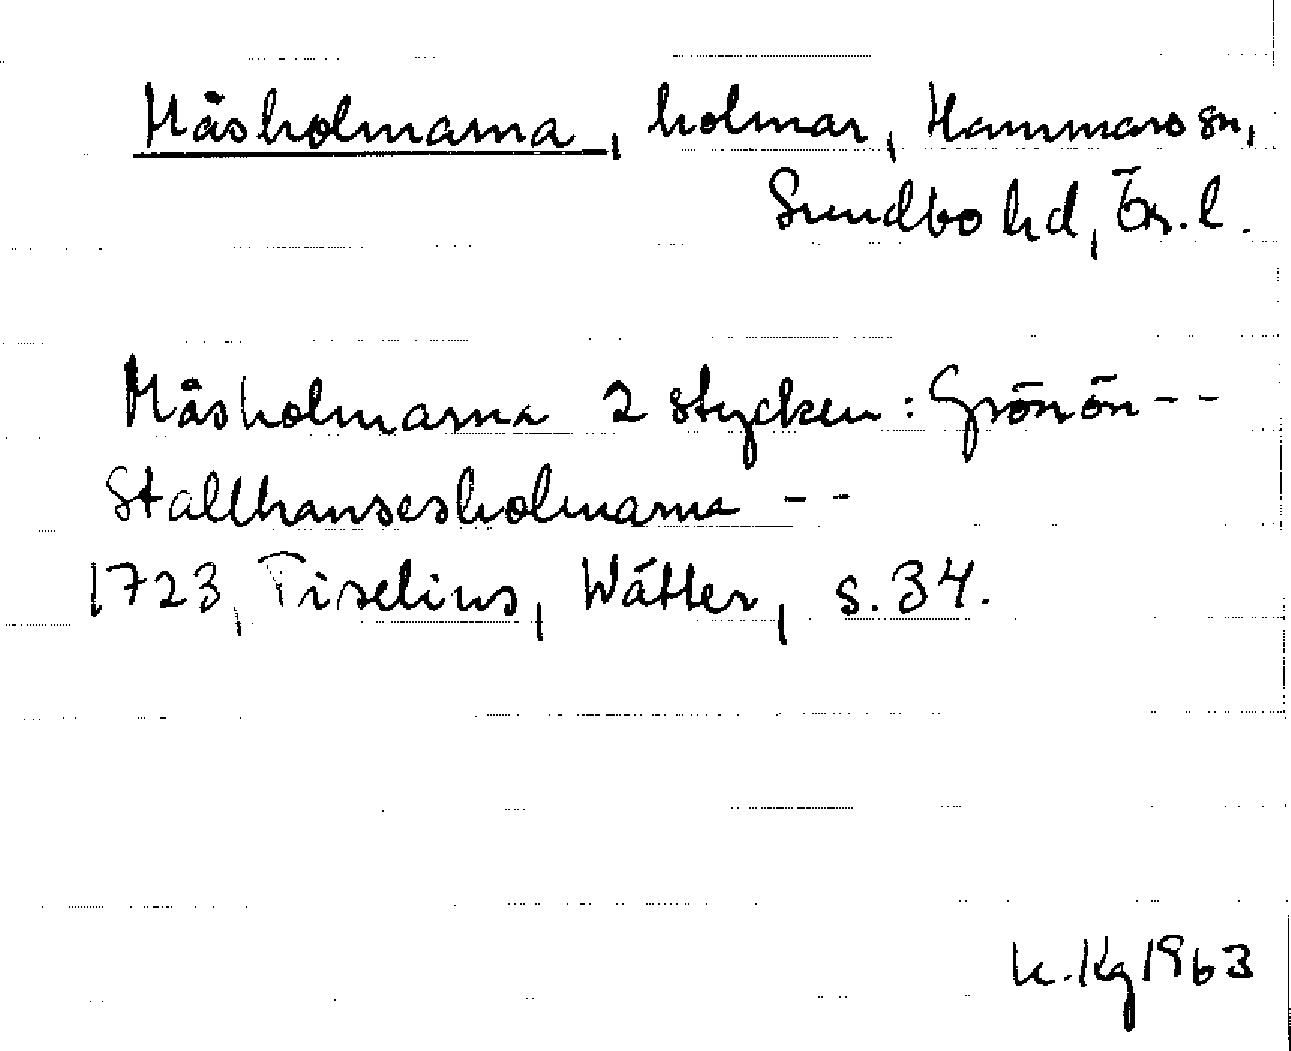 Måsholmarna, holmar, Hammars sn,
Sundbo hd, Ör. l.
Måsholmarna 2 stycken: Grönön--
Stallhansesholmarna --
1723, Tiselius, Wätter, s. 34.
K. Kg 1963